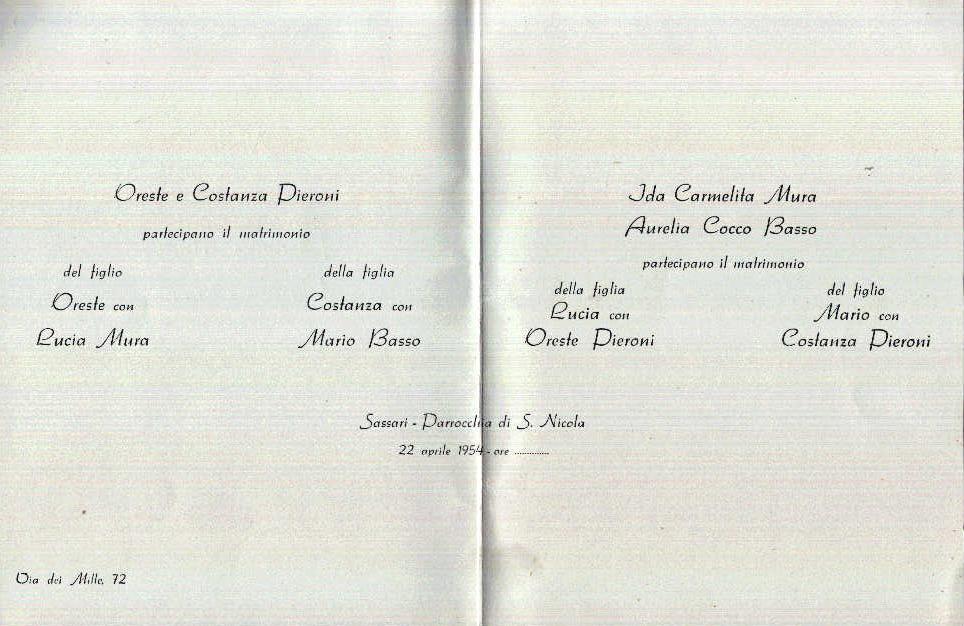 Oreste e Costanza Pieroni
partecipano il matrimonio
del figlio
Oreste con
Lucia Mura
della figlia
Costanza con
Mario Basso
Ida Carmelita Mura
Aurelia Cocco Basso
partecipano il matrimonio
della figlia
Lucia con
Oreste Pieroni
del figlio
Mario con
Costanza Pieroni
Sassari - Parrocchia di S. Nicola
22 aprile 1954 - ore ............
Via dei Mille, 72